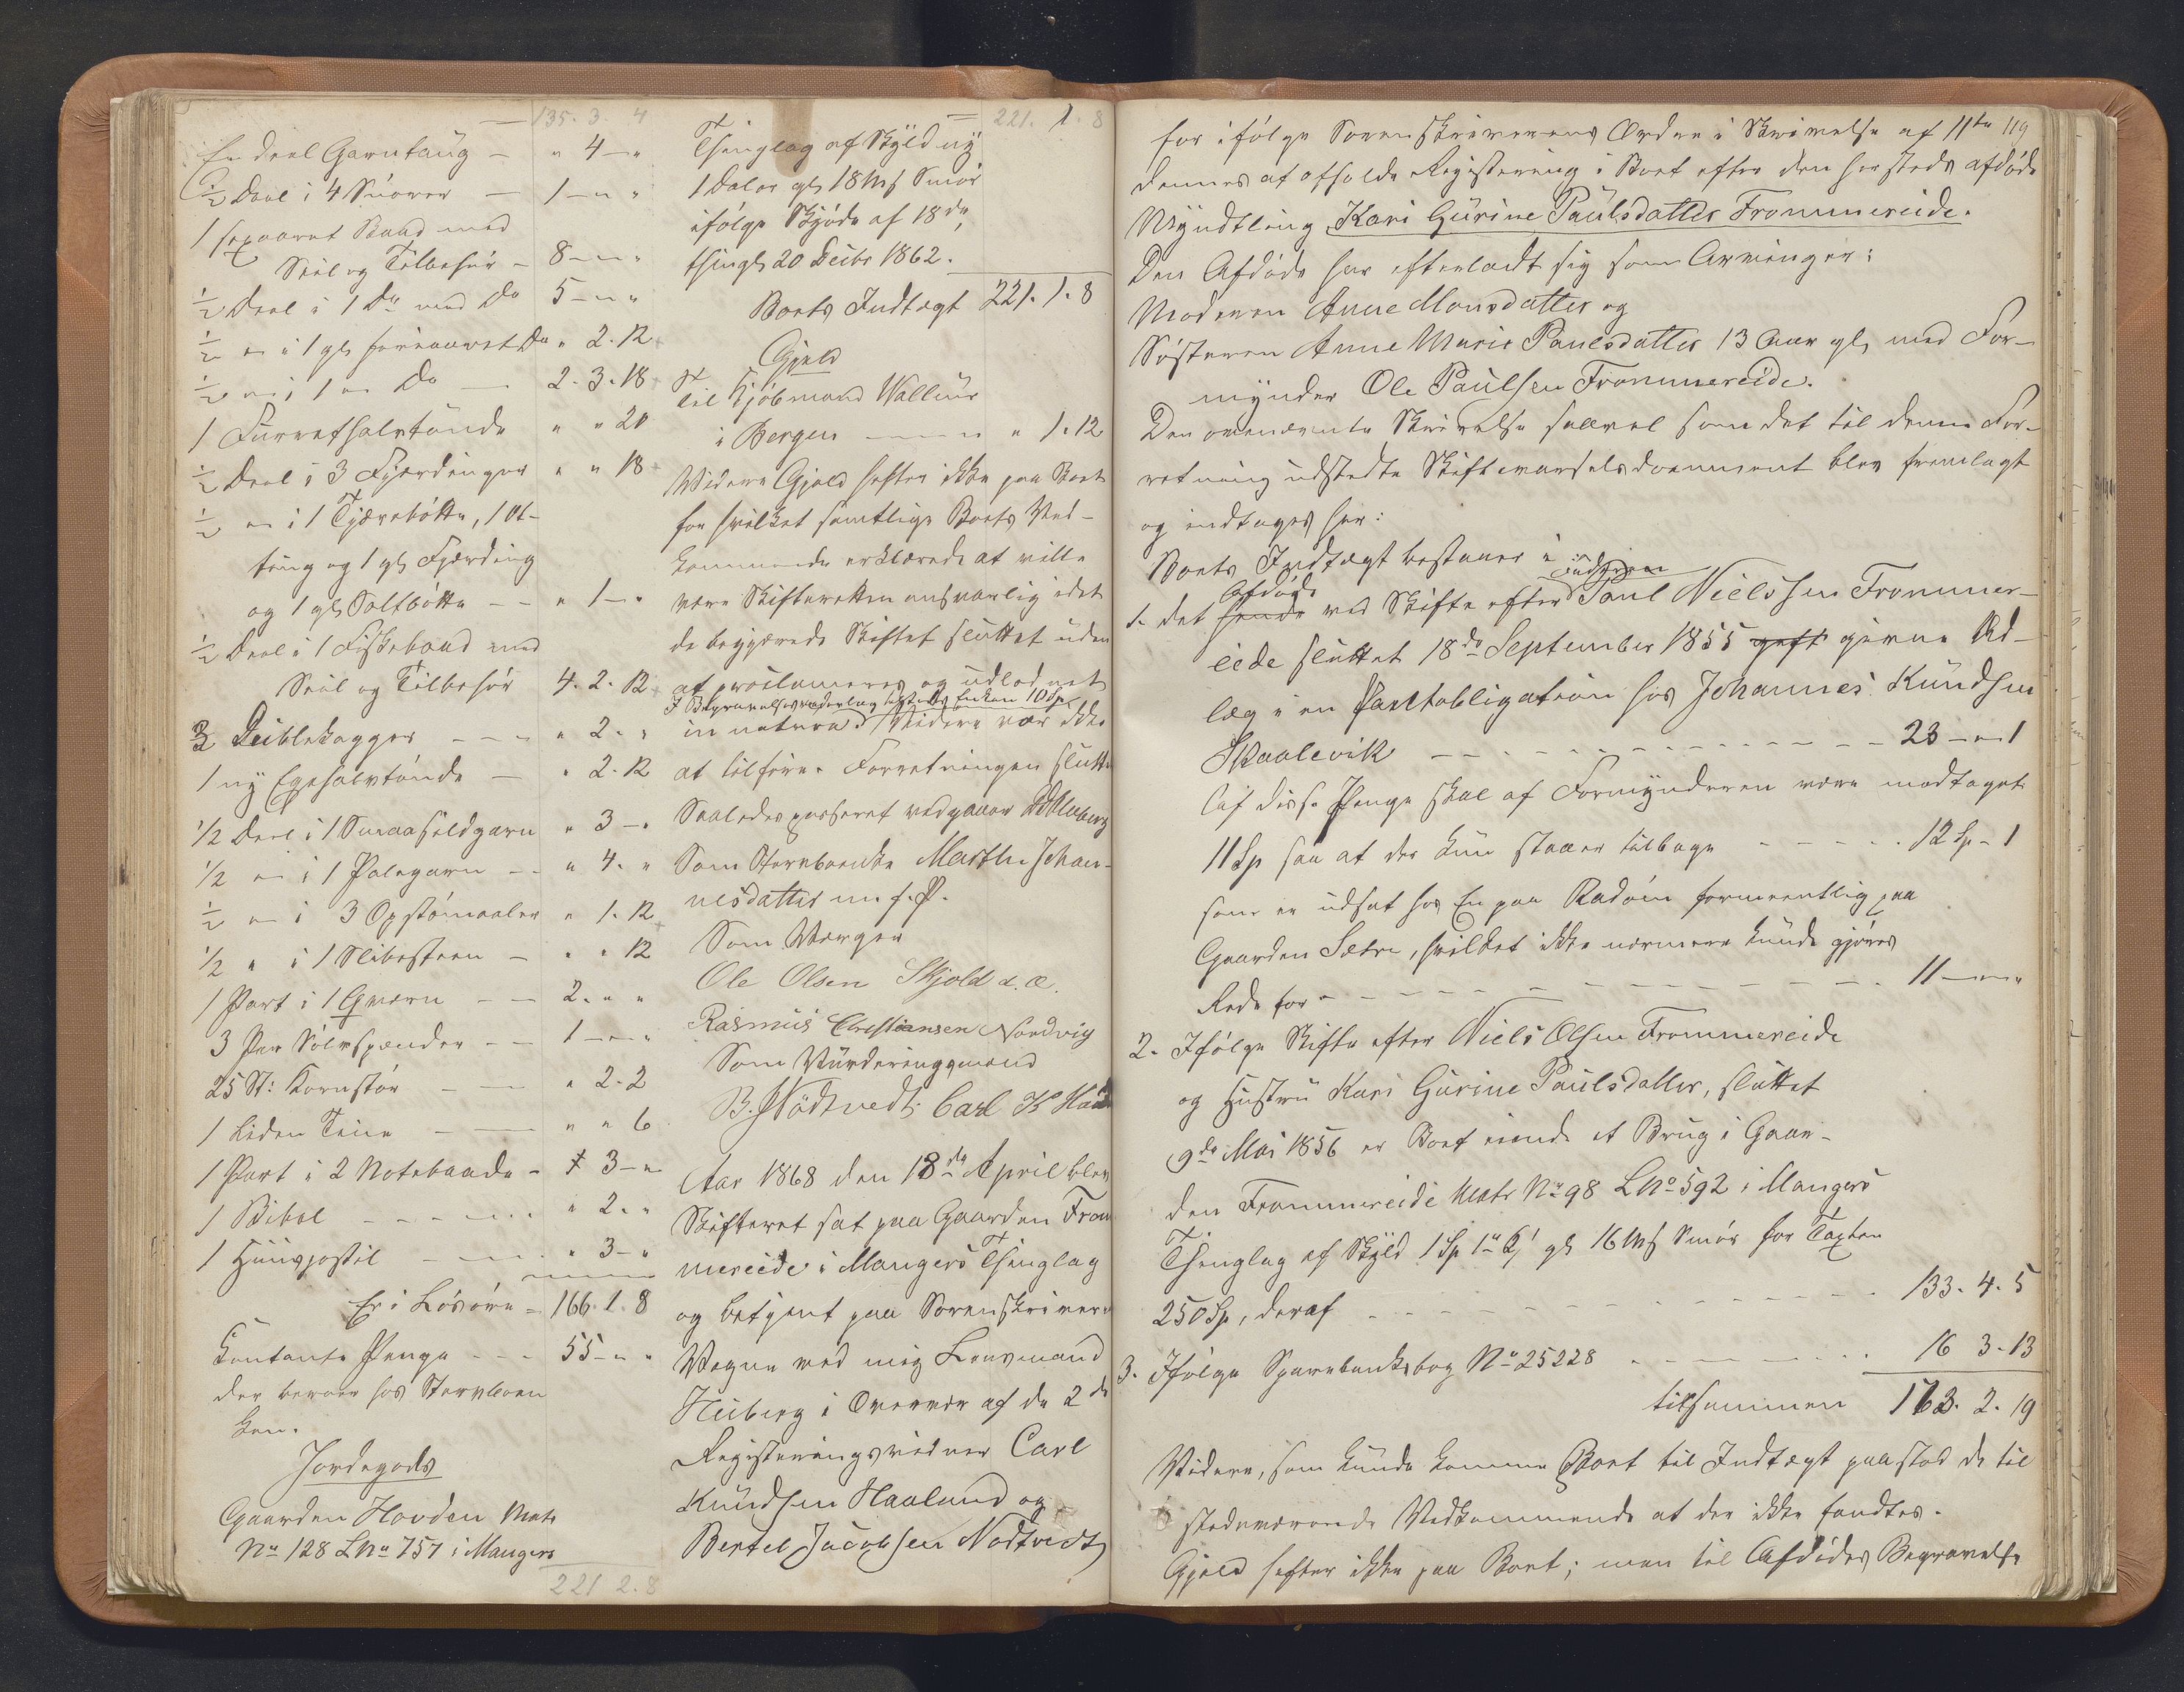 135. 3. 4
En deel Garntaug – " 4 – "
½ Deel i 4 Snører – 1 – " "
1 sexaaret Baad med
Seil og Tilbehør – 8 – " "
½ Deel i 1 Do med Do 5 – " "
½ " i 1 gl. Do " 2. 12
½ " i 1 " Do – 2. 3. 18
1 Furrutønde " " 20
½ Deel i 3 Fjerdinger " " 18
½ " i 1 Tjærebøtte, 1 Ot-
ting og 1 gl. Fjerding
og 1 gl. Saltbøtte – – " 1 – "
½ Deel i 1 Fiskebaad med
Seil og Tilbehør 4. 2. 12
Deiblekagger – – – " 2. "
1 ny Egehalvtønde – " 2. 12
½ Deel i 1 Smaasildgarn " 3 – "
½ " i 1 Palegarn – – " 4. "
½ " i 3 Opstømaaler " 1. 12
½ " i 1 Slibesteen – " " 12
1 Part i 1 Qværn – – 2. " "
3 Par Sølvspænder – – 1 – " "
25 St: Kornstør – – " 2. 2
1 Liden Teine – – " " 6
1 Part i 2 Notebaade – 3 – "
1 Bibel – – – – " 2. "
1 Huuspostil – – " 3 – "
Er i Løsøre – 166. 1. 8
Contante Penge – – – 55 – " "
der beroer hos Stervboen
ken.
Jordegods
Gaarden Hovden Mats
No 128 LNo 757 i Mangers
221 2. 8
221. 1. 8
Thinglag af Skyld ny
1 Daler gl. 18 Mk Smør
ifølge Skjøde af 18de,
thingl. 20 Deibr 1862.
Boets Indtægt 221. 1. 8
Gjeld
til Kjøbmand Wallem
i Bergen – – – " 1. 12
Videre Gjeld hefter ikke paa Boet
for hvilket samtlige Boets Ved-
kommende erklærede at ville
være Skifteretten ansvarlig idet
de begjærede Skiftet sluttet uden
at proclameres og udlodnet
I Begravelsesvederlag tilstodes Enken 10 Sp.
in natura. Videre var ikke
at tilføre. Forretningen sluttet
Saaledes passeret vedgaaer
Som Stervboenke Marthe Johan-
nesdatter m. f. P.
Som Værger
Ole Olsen Skjold d. æ.
Rasmus Christiansen Nordvig
Som Vurderingsmænd
B. J Nødtvedt. Carl K Haa
Aar 1868 den 18de April blev
Skifteret sat paa Gaarden From
mereide i Mangers Thinglag
og betjent paa Sorenskriver
Vegne ved mig Lensmand
Heiberg i Overvær af de 2de
Registeringsvidner Carl
Knudsen Haaland og
Bertel Jacobsen Nødtvedt,
119
for ifølge Sorenskriverens Ordre i Skrivelse af 11te
dennes at afholde Registering i Boet efter den hersteds afdøde
Myndtling Kari Gurine Paulsdatter Frommereide.
Den Afdøde har efterladt sig som Arvinger:
Moderen Anne Monsdatter og
Søsteren Anne Marie Paulsdatter 13 Aar gl. med For-
mynder Ole Paulsen Frommereide.
Den ovennævnte Skrivelse saavel som det til denne For-
retning udstedte Skiftevarselsdocument blev fremlagt
og indtages her:
Boets Indtægt bestaaer i
Afdøde
1. det hende ved Skifte efter Paul Nielssen Frommer-
eide sluttet 18de September 1855 givne Ud-
læg i en Panteobligation hos Johannes Knudsen
Skaalevik – – – – – – – – 23 – " 1
Af disse Penge skal af Formynderen være modtaget
11 Sp saa at der kun staaer tilbage – – – – 12 Sp – 1
som er udsat hos En paa Radøen formeentlig paa
Gaarden Sætre, hvilket ikke nærmere kunde gjøres
Rede for – – – – – – – – 11 – " "
2. Ifølge Skifte efter Niels Olsen Frommereide
og Hustru Kari Gurine Paulsdatter, sluttet
9de Mai 1856 er Boet eiende et Brug i Gaar-
den Frommereide Matr No 98 LNo 592 i Mangers
Thinglag af Skyld 1 Sp 1 gl. 16 Mk Smør for Taxten
250 Sp, deraf – – – – – – – 133. 4. 5
3. Ifølge Sparebanksbog No 25228 – – – – 16 3. 13
tilsammen 163. 2. 19
Videre, som kunde komme Boet til Indtægt paastod de til
stedeværende Vedkommende at der ikke fandtes.
Gjeld hefter ikke paa Boet; men til Afdødes Begravelse